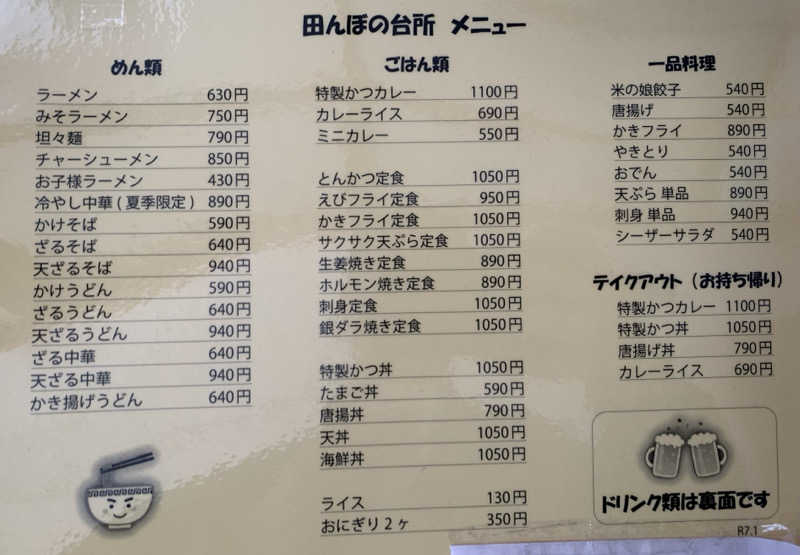 田んぼの台所 メニュー
めん類
ラーメン 630円
みそラーメン 750円
坦々麺 790円
チャーシューメン 850円
お子様ラーメン 430円
冷やし中華(夏季限定) 890円
かけそば 590円
ざるそば 640円
天ざるそば 940円
かけうどん 590円
ざるうどん 640円
天ざるうどん 940円
ざる中華 640円
天ざる中華 940円
かき揚げうどん 640円
ごはん類
特製かつカレー 1100円
カレーライス 690円
ミニカレー 550円
とんかつ定食 1050円
えびフライ定食 950円
かきフライ定食 1050円
サクサク天ぷら定食 1050円
生姜焼き定食 890円
ホルモン焼き定食 890円
刺身定食 1050円
銀ダラ焼き定食 1050円
特製かつ丼 1050円
たまご丼 590円
唐揚丼 790円
天丼 1050円
海鮮丼 1050円
ライス 130円
おにぎり2ヶ 350円
一品料理
米の娘餃子 540円
唐揚げ 540円
かきフライ 890円
やきとり 540円
おでん 540円
天ぷら 単品 890円
刺身 単品 940円
シーザーサラダ 540円
テイクアウト(お持ち帰り)
特製かつカレー 1100円
特製かつ丼 1050円
唐揚げ丼 790円
カレーライス 690円
ドリンク類は裏面です
R7.1